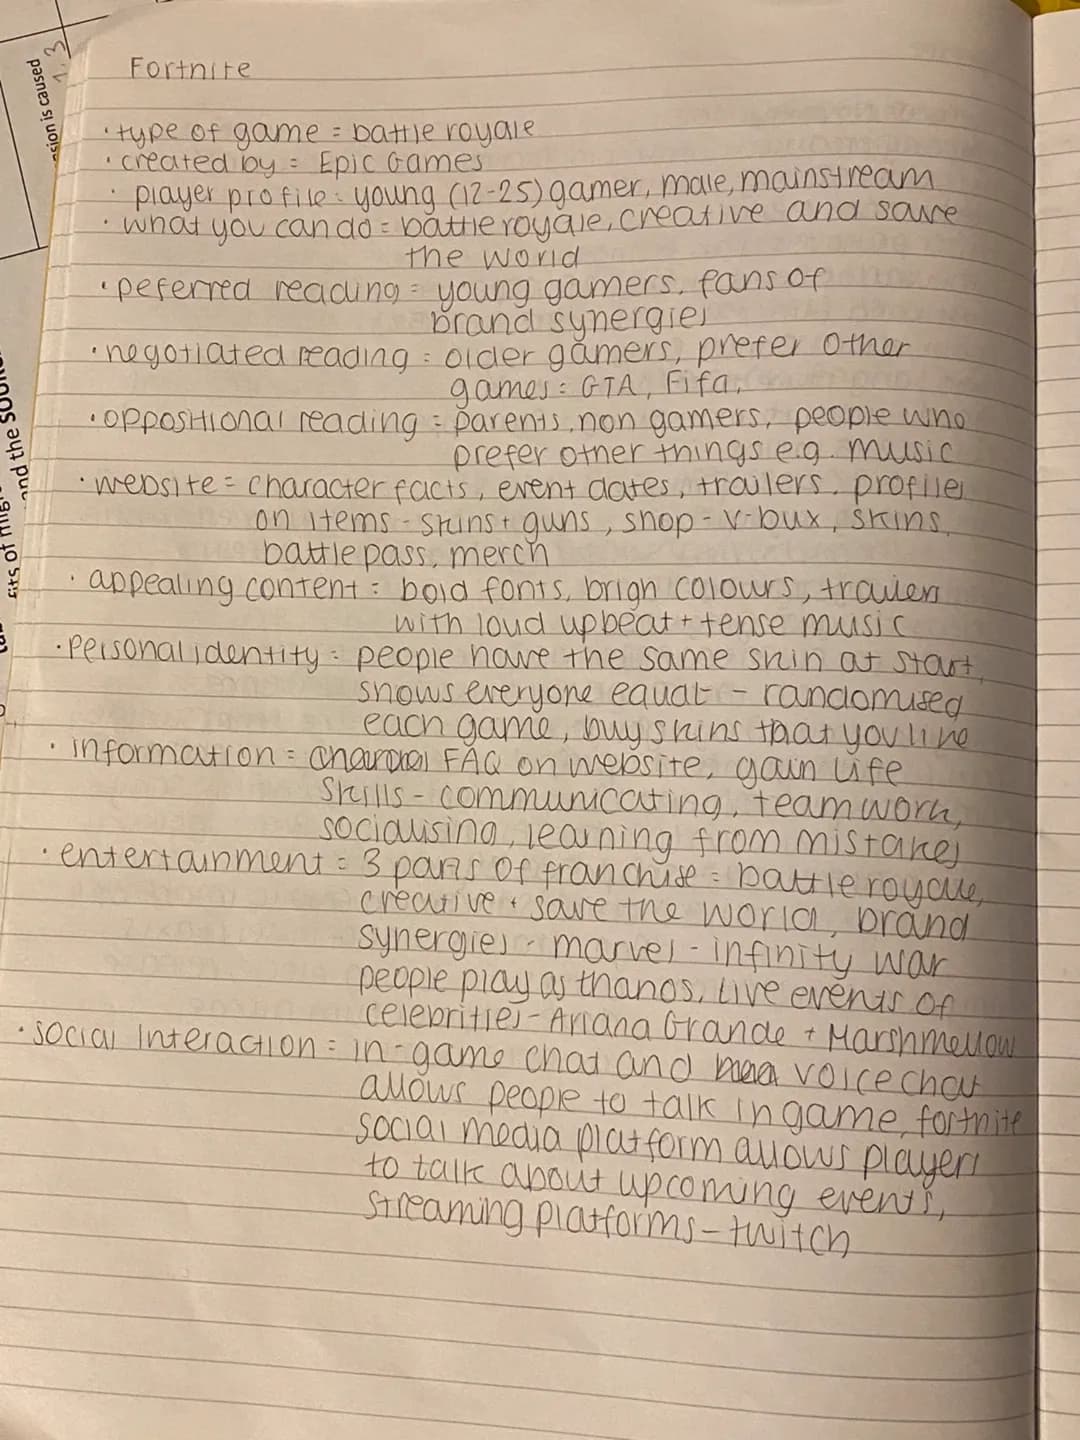 Fortnite
· type of game = battle royale
· created by = Epic Games
· player profile = young (12-25) gamer, male, mainstream
· what you can do = battle royale, creative and save
the world
· peferred reading = young gamers, fans of
brand synergies
· negotiated reading = older gamers, prefer other
games = GTA, Fifa,
· oppositional reading = parents, non gamers, people who
prefer other things e.g. music
· website = character facts, event dates, trailers, profiles
on items - skins + guns, shop - v-bux, skins,
battle pass, merch
· appealing content = bold fonts, brigh colours, trailers
with loud upbeat + tense music
· personal identity = people have the same skin at start,
shows everyone equal - randomised
each game, buy skins that you like
· information = FAQ on website, gain life
skills - communicating, teamwork,
socialising, learning from mistakes
· entertainment = 3 parts of franchise = battle royale,
creative + save the world, brand
synergies - marvel - infinity war
people play as thanos, live events of
celebrities - Ariana Grande + Marshmellow
· social interaction = in-game chat and voice chat
allows people to talk in game, fortnite
social media platform allows players
to talk about upcoming events,
streaming platforms - twitch
sion is caused
1.3
and the